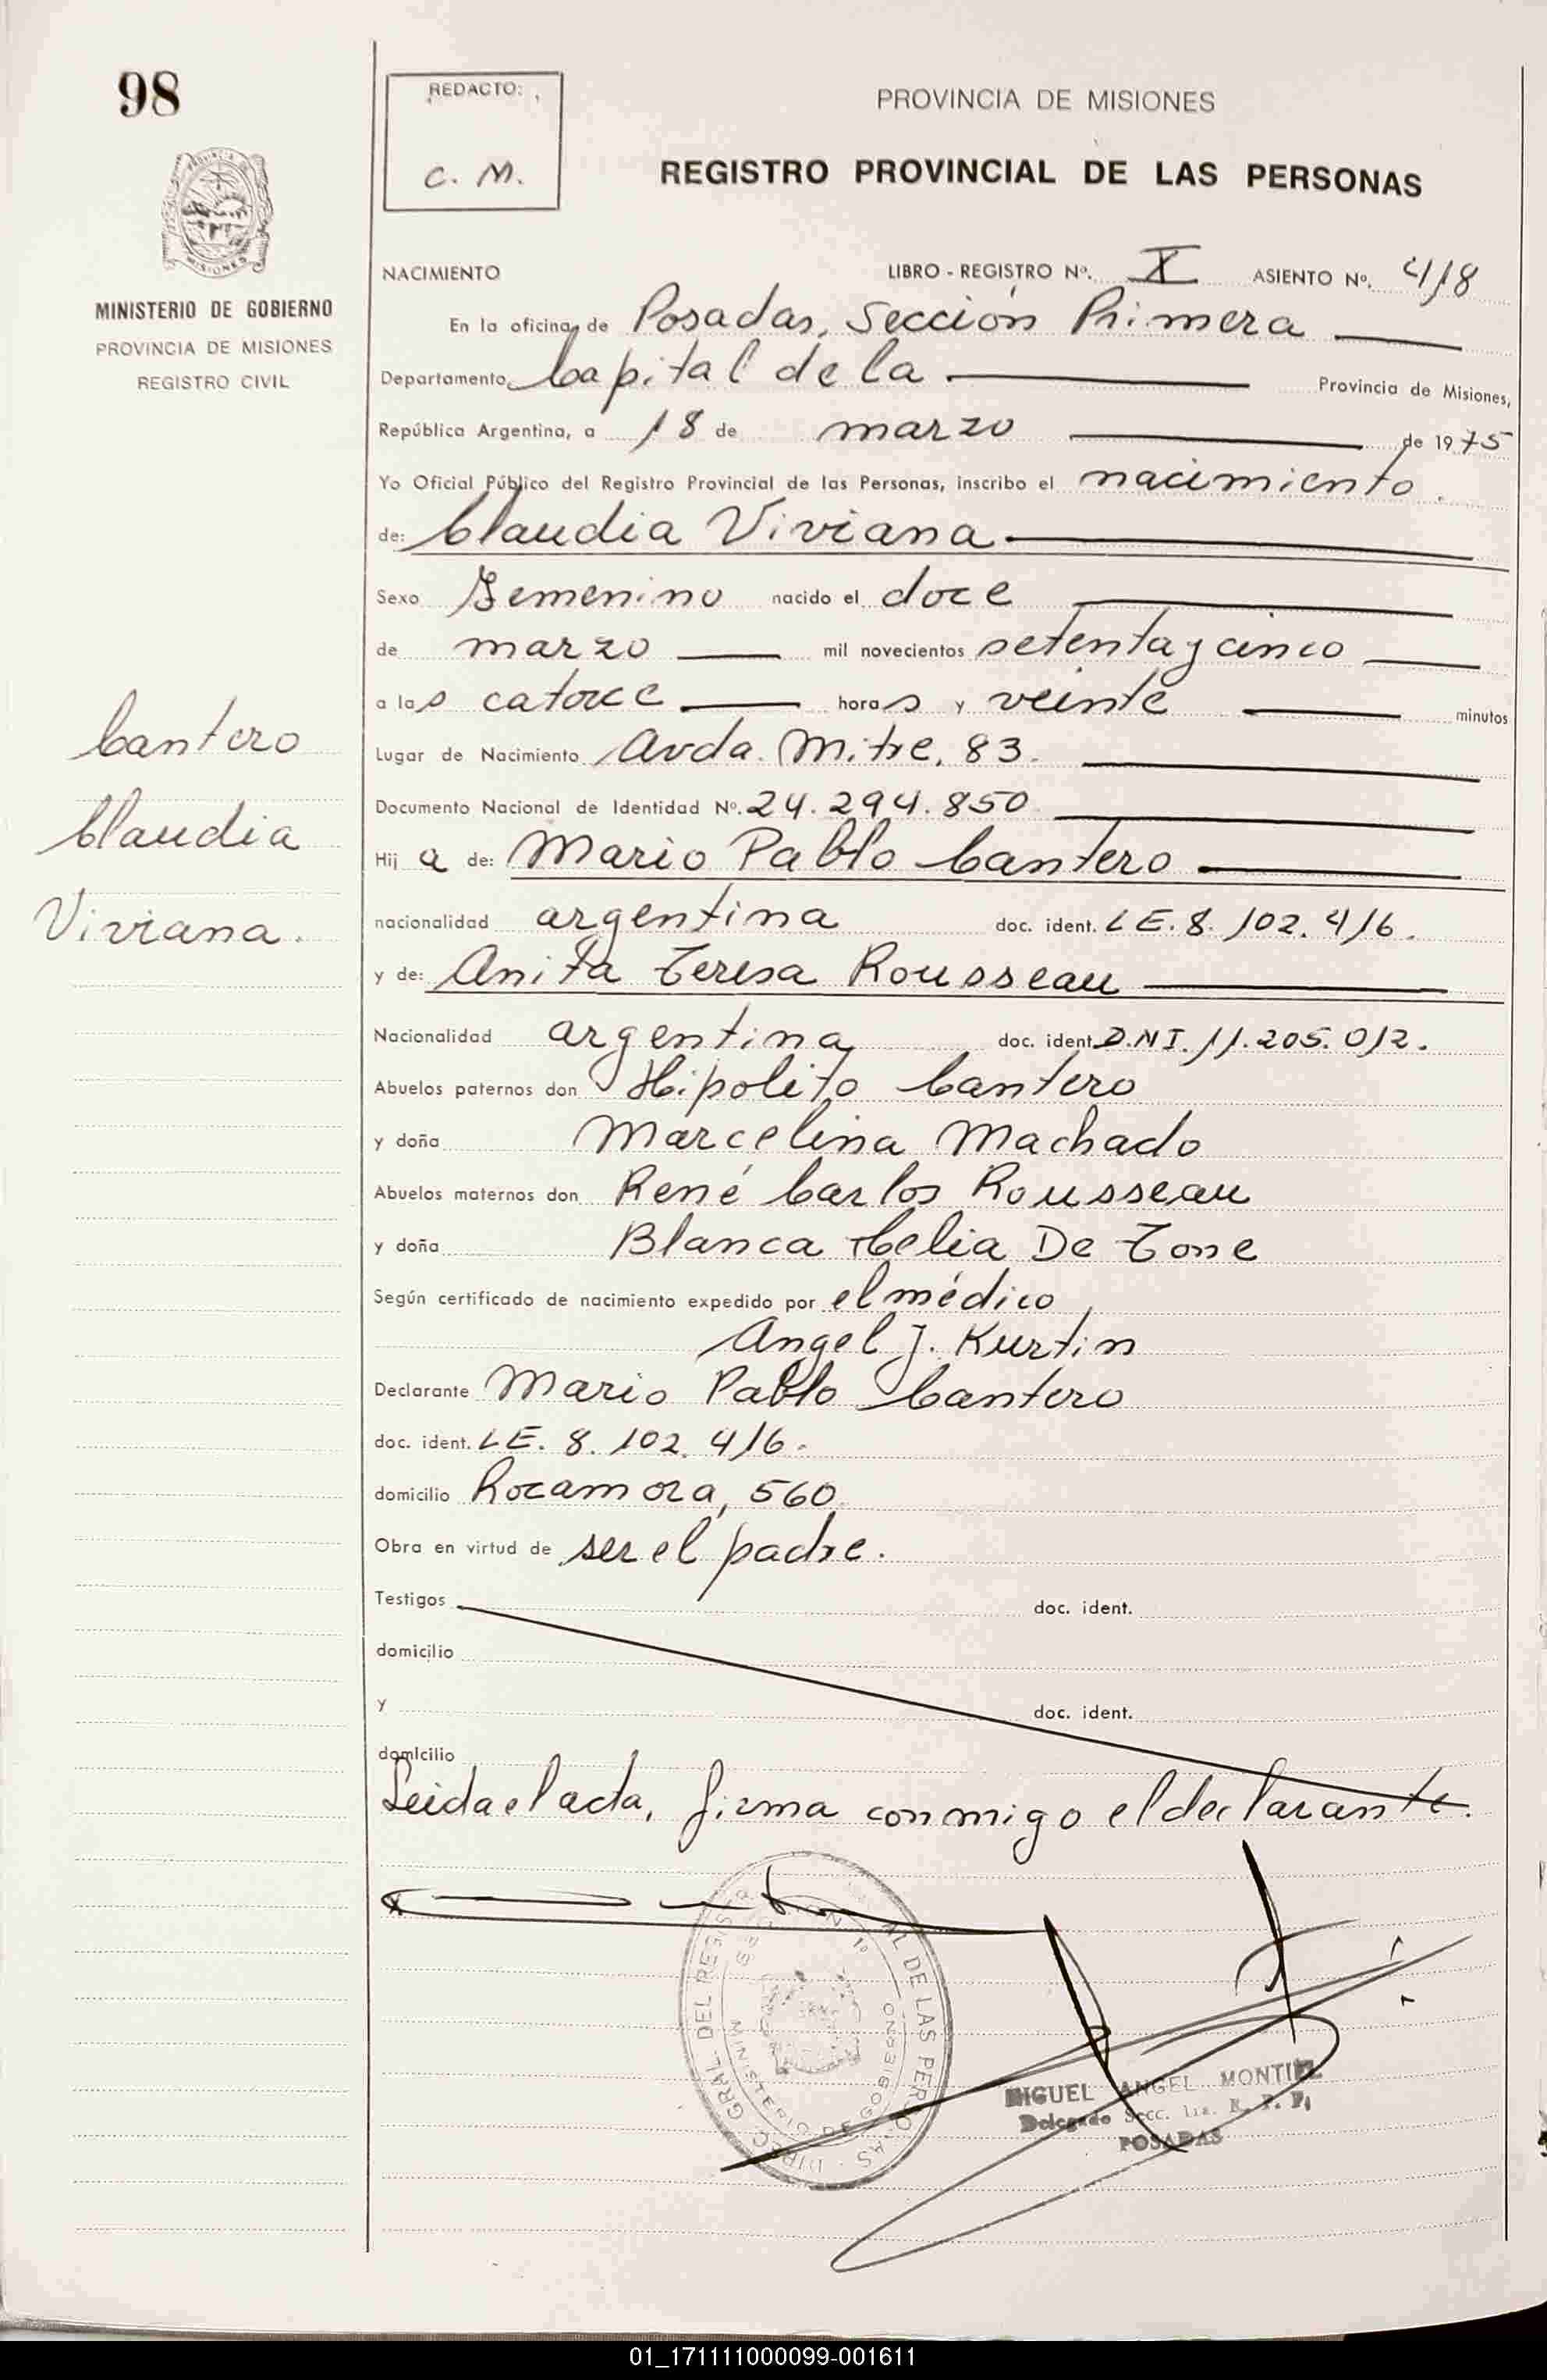 98
REDACTO:
C. M.
PROVINCIA DE MISIONES
REGISTRO PROVINCIAL DE LAS PERSONAS
MINISTERIO DE GOBIERNO
PROVINCIA DE MISIONES
REGISTRO CIVIL
NACIMIENTO LIBRO - REGISTRO Nº. X ASIENTO Nº. 418
En la oficina de Posadas, Sección Primera
Departamento Capital de la Provincia de Misiones,
República Argentina, a 18 de marzo de 1975
Yo Oficial Público del Registro Provincial de las Personas, inscribo el nacimiento.
de: Claudia Viviana
Sexo Femenino nacido el doce
de marzo mil novecientos setenta y cinco
a las catorce horas y veinte minutos
Lugar de Nacimiento Avda. Mitre, 83.
Documento Nacional de Identidad Nº. 24.294.850
Hija de: Mario Pablo Cantero
nacionalidad argentina doc. ident. LE. 8.102.416.
y de: Anita Teresa Rousseau
Nacionalidad argentina doc. ident. D.N.I. 11.205.012.
Abuelos paternos don Hipolito Cantero
y doña Marcelina Machado
Abuelos maternos don René Carlos Rousseau
y doña Blanca Celia De Tone
Según certificado de nacimiento expedido por el médico
Angel J. Kurtin
Declarante Mario Pablo Cantero
doc. ident. LE. 8.102.416.
domicilio Rocamora, 560
Obra en virtud de ser el padre.
Testigos doc. ident.
domicilio
y doc. ident.
domicilio
Leida el acta, firma conmigo el declarante.
Cantero
Claudia
Viviana.
DIREC. GRAL. DEL REGISTRO DE LAS PERSONAS
MINISTERIO DE GOBIERNO
MIGUEL ANGEL MONTIEL
Delegado Secc. 1ra. R. P. P.
POSADAS
01_171111000099-001611